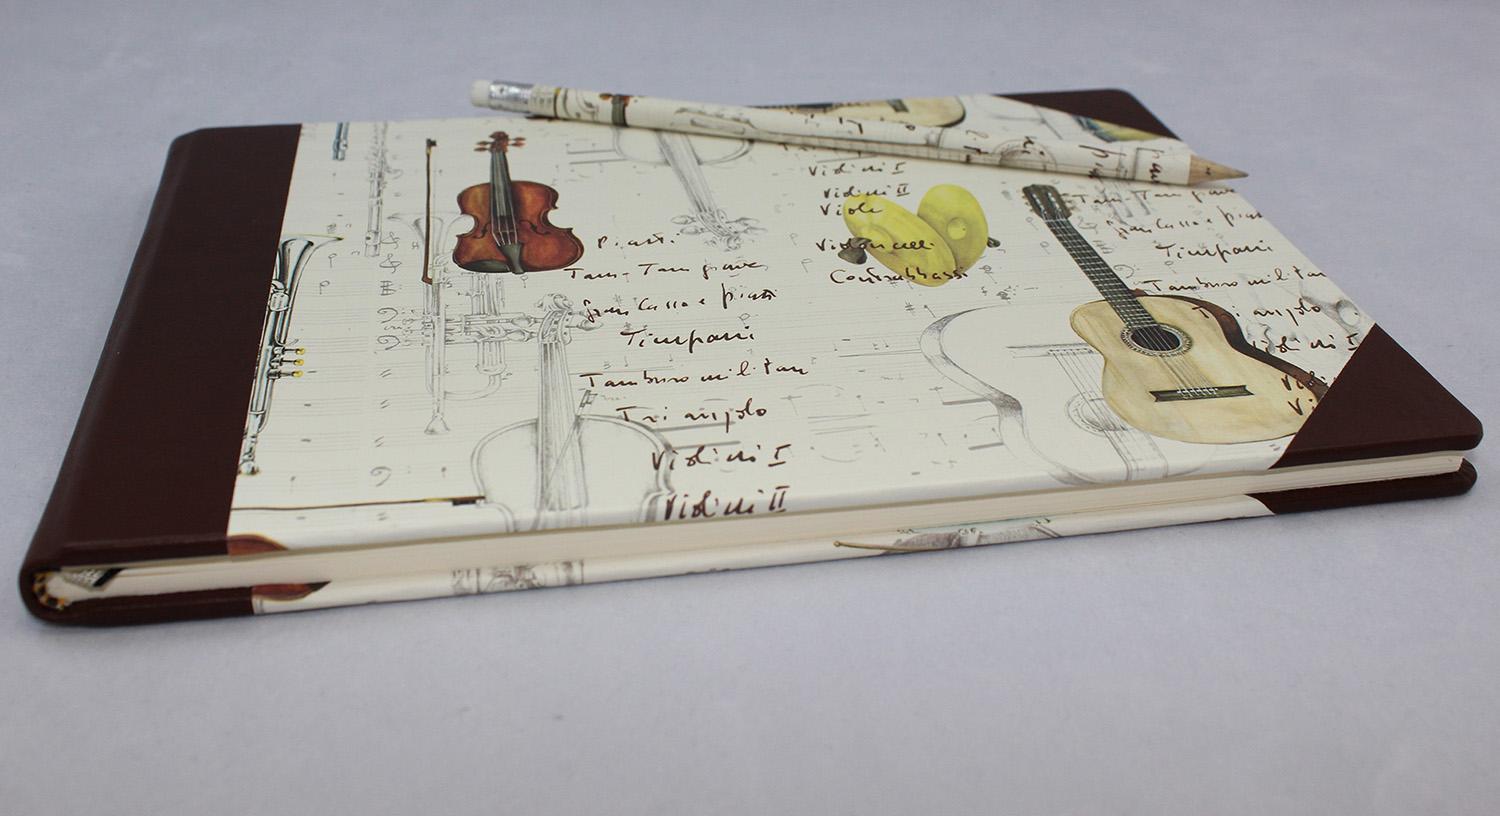 Piatti
Tam-Tam grave
gran Cassa e piatti
Timpani
Tamburo militare
Triangolo
Violini I
Violini II
Violini I
Violini II
Viole
Violoncelli
Contrabbassi
Tam-Tam grave
gran Cassa e piatti
Timpani
Tamburo militar
Triangolo
Violini I